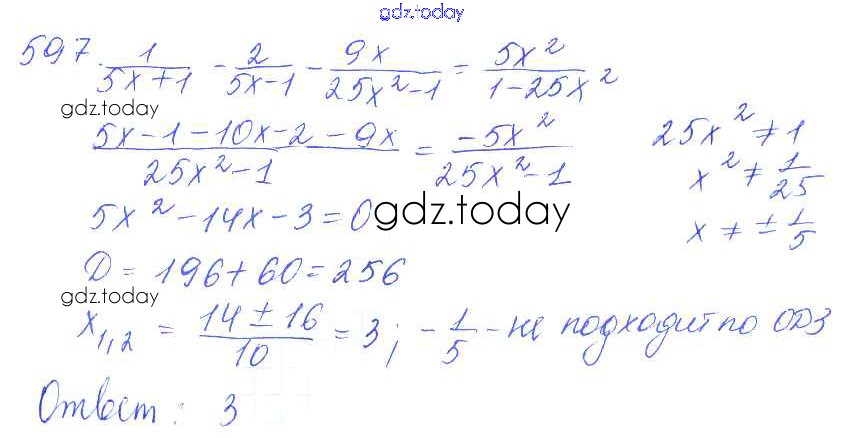 gdz.today
597. 1/(5x+1) - 2/(5x-1) - 9x/(25x²-1) = 5x²/(1-25x²)
gdz.today
(5x-1-10x-2-9x)/(25x²-1) = -5x²/(25x²-1)
25x² ≠ 1
x² ≠ 1/25
x ≠ ± 1/5
5x²-14x-3=0
gdz.today
D = 196+60=256
gdz.today
x₁,₂ = (14±16)/10 = 3; -1/5 - не подходит по ОДЗ
Ответ: 3